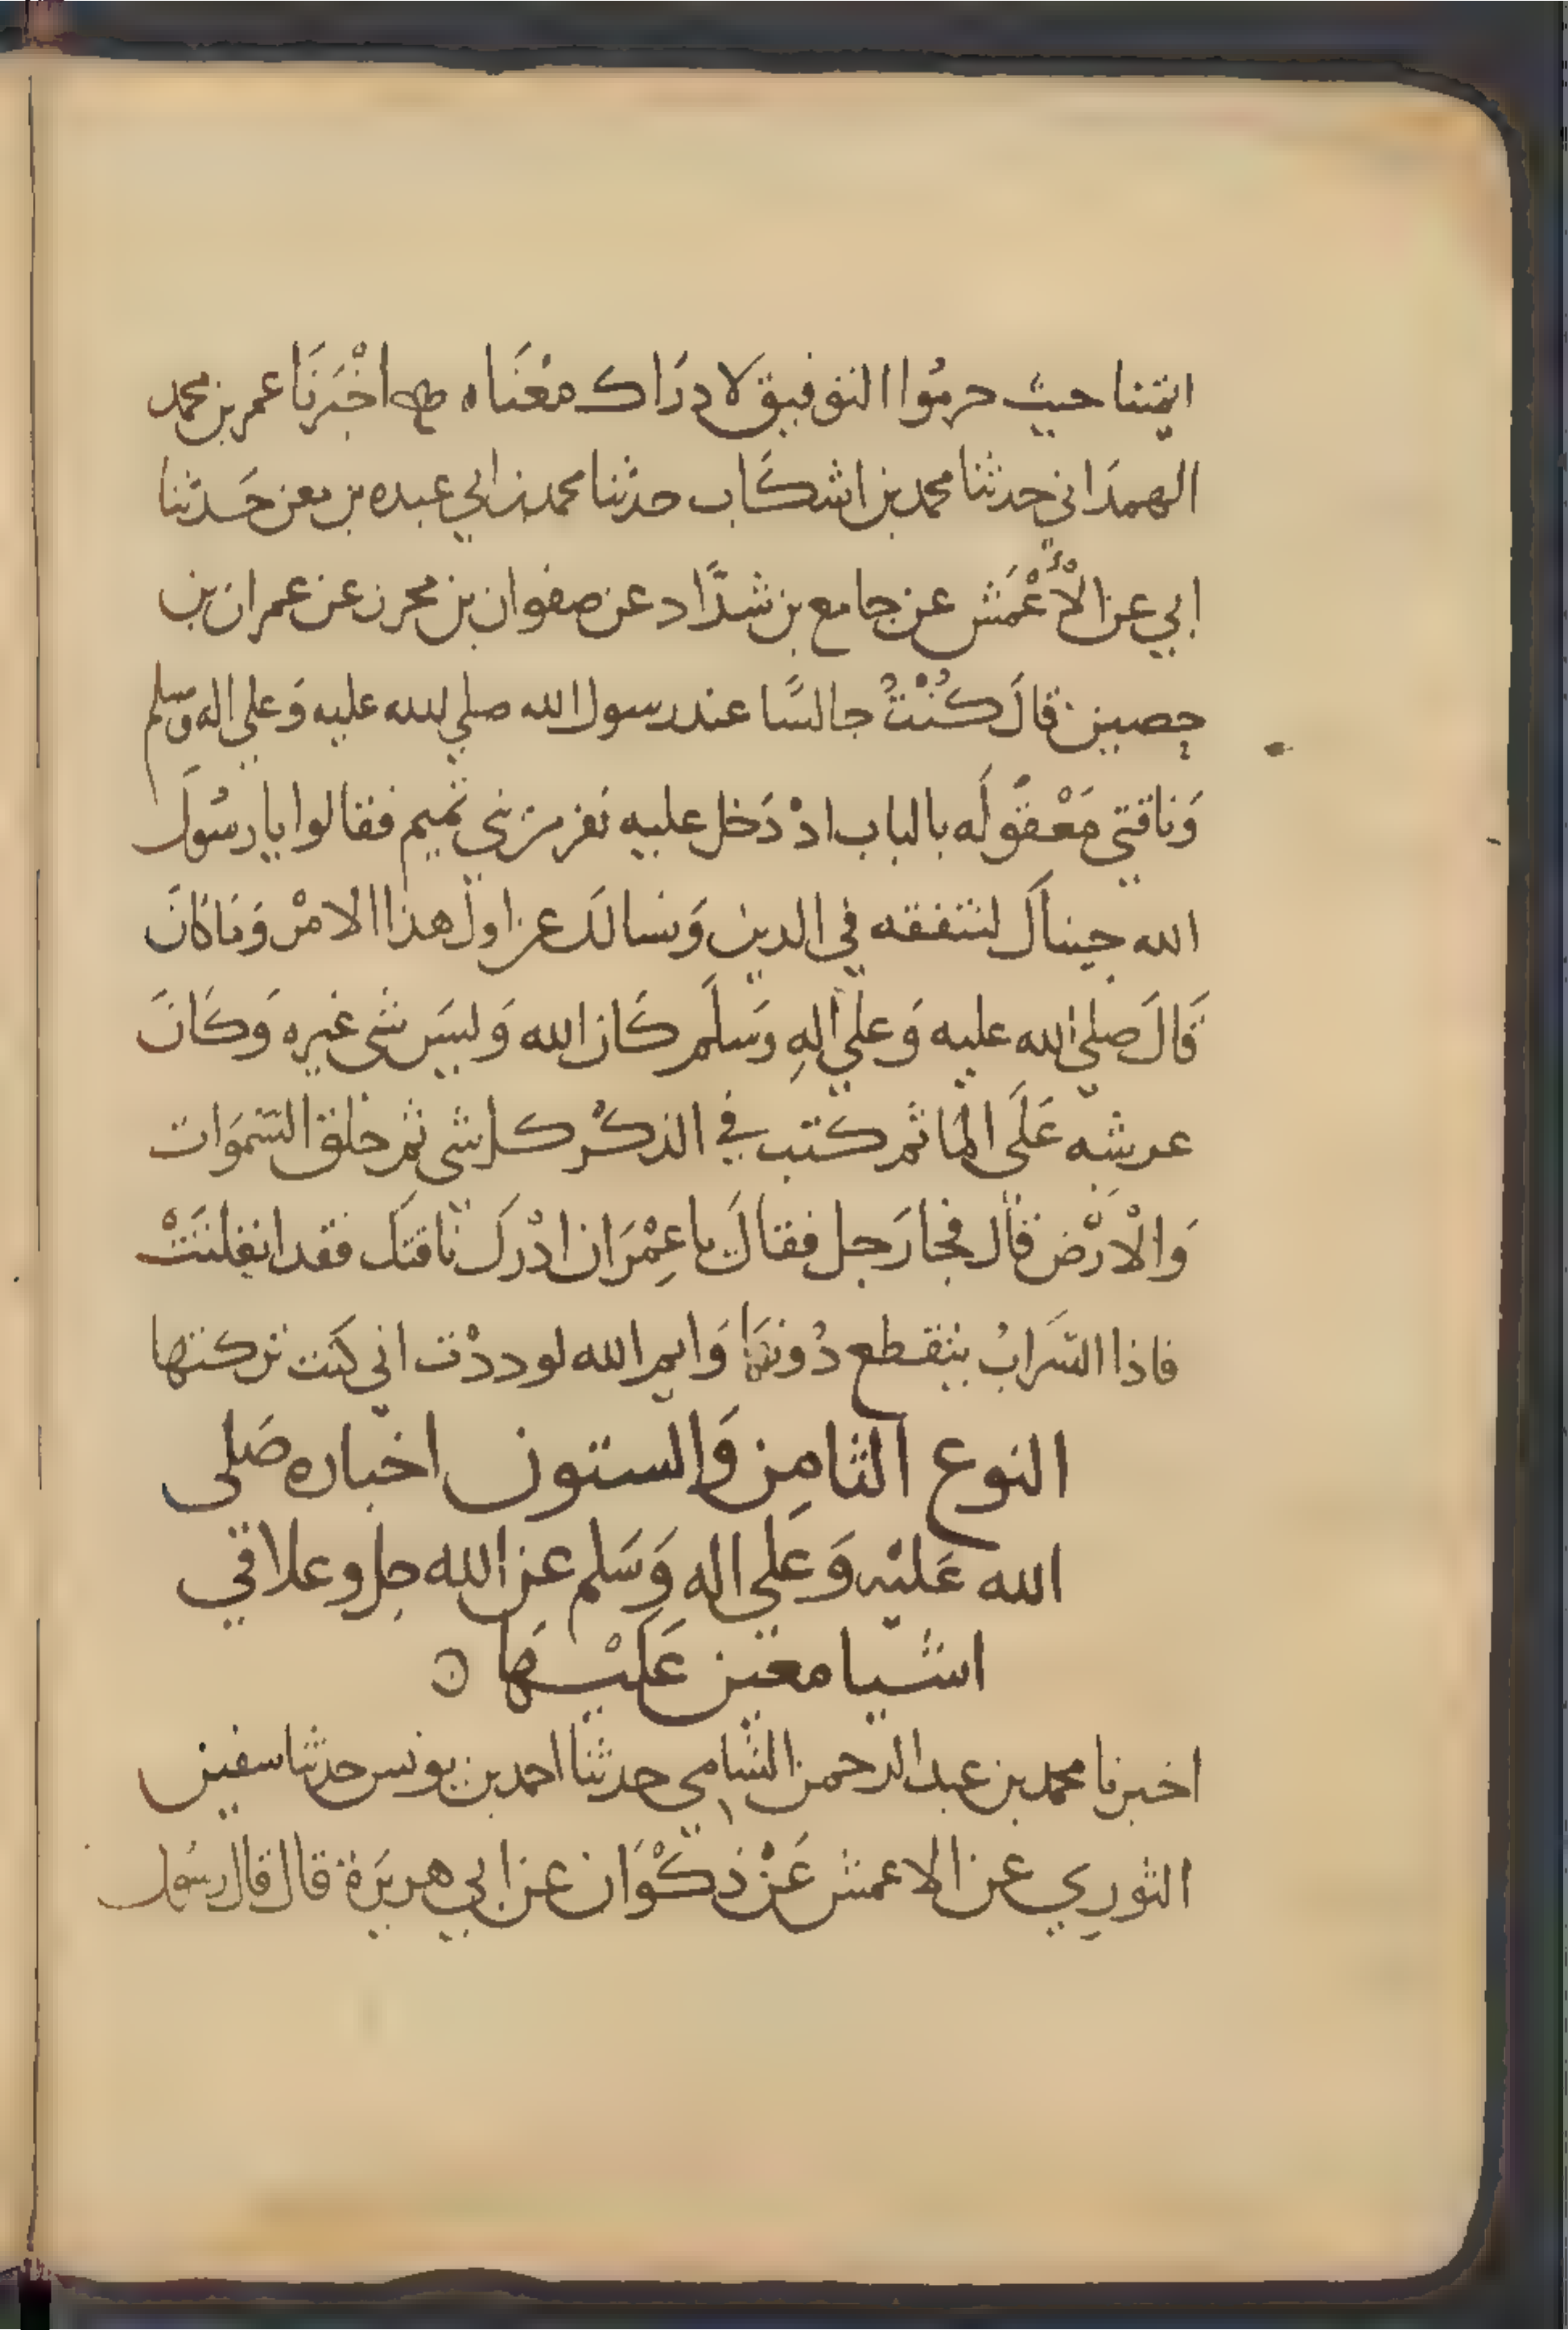 ايمتنا حيث حرمُوا التوفيق لادرَاك معْنَاه اخْبَرَنَا عمر بن محمد
الهمدَاني حدثنا محمد بن اشكَاب حدثنا محمد بن ابي عبيده بن معن حَدثنا
ابي عن الأعْمَش عن جامع بن شدَّاد عن صفوان بن محرز عن عمران بن
حصين قالَ كُنْتُ جالسًا عند رسول الله صلي الله عليه وَعلي اله وسلم
وَناقتي مَعْقُولَه بالباب ادْ دَخل عليه نفر من بني تميم فقالوا يا رسُولَ
الله جيناكَ لنتفقه في الدين وَنسالك عن اول هذا الامْر وَمَا كانَ
قَالَ صلي الله عليه وَعلي الهِ وَسلَم كَان الله وَليسَ شي غيره وَكَانَ
عرشه عَلَى المَا ثم كتب في الذكْر كل شي ثم خلق السَّموَات
وَالْارْض قال فجا رَجل فقالَ يا عِمْرَان ادْرك نَاقتَك فقد انفلتَتْ
فاذا السَّرَابُ ينقطع دُونَهَا وَايم الله لوددْت اني كنَت تركتها
النوع الثامِن وَالستون اخباره صَلى
الله عَليْه وَعَلي اله وَسَلم عن الله جل وعلا في
اشيا معين عَليْهَا
اخبرنا محمد بن عبد الرحمن الشامي حدثنا احمد بن يونس حدثنا سفين
الثوري عن الاعمش عَنْ ذكْوَان عن ابي هريرَة قال قال رسُول